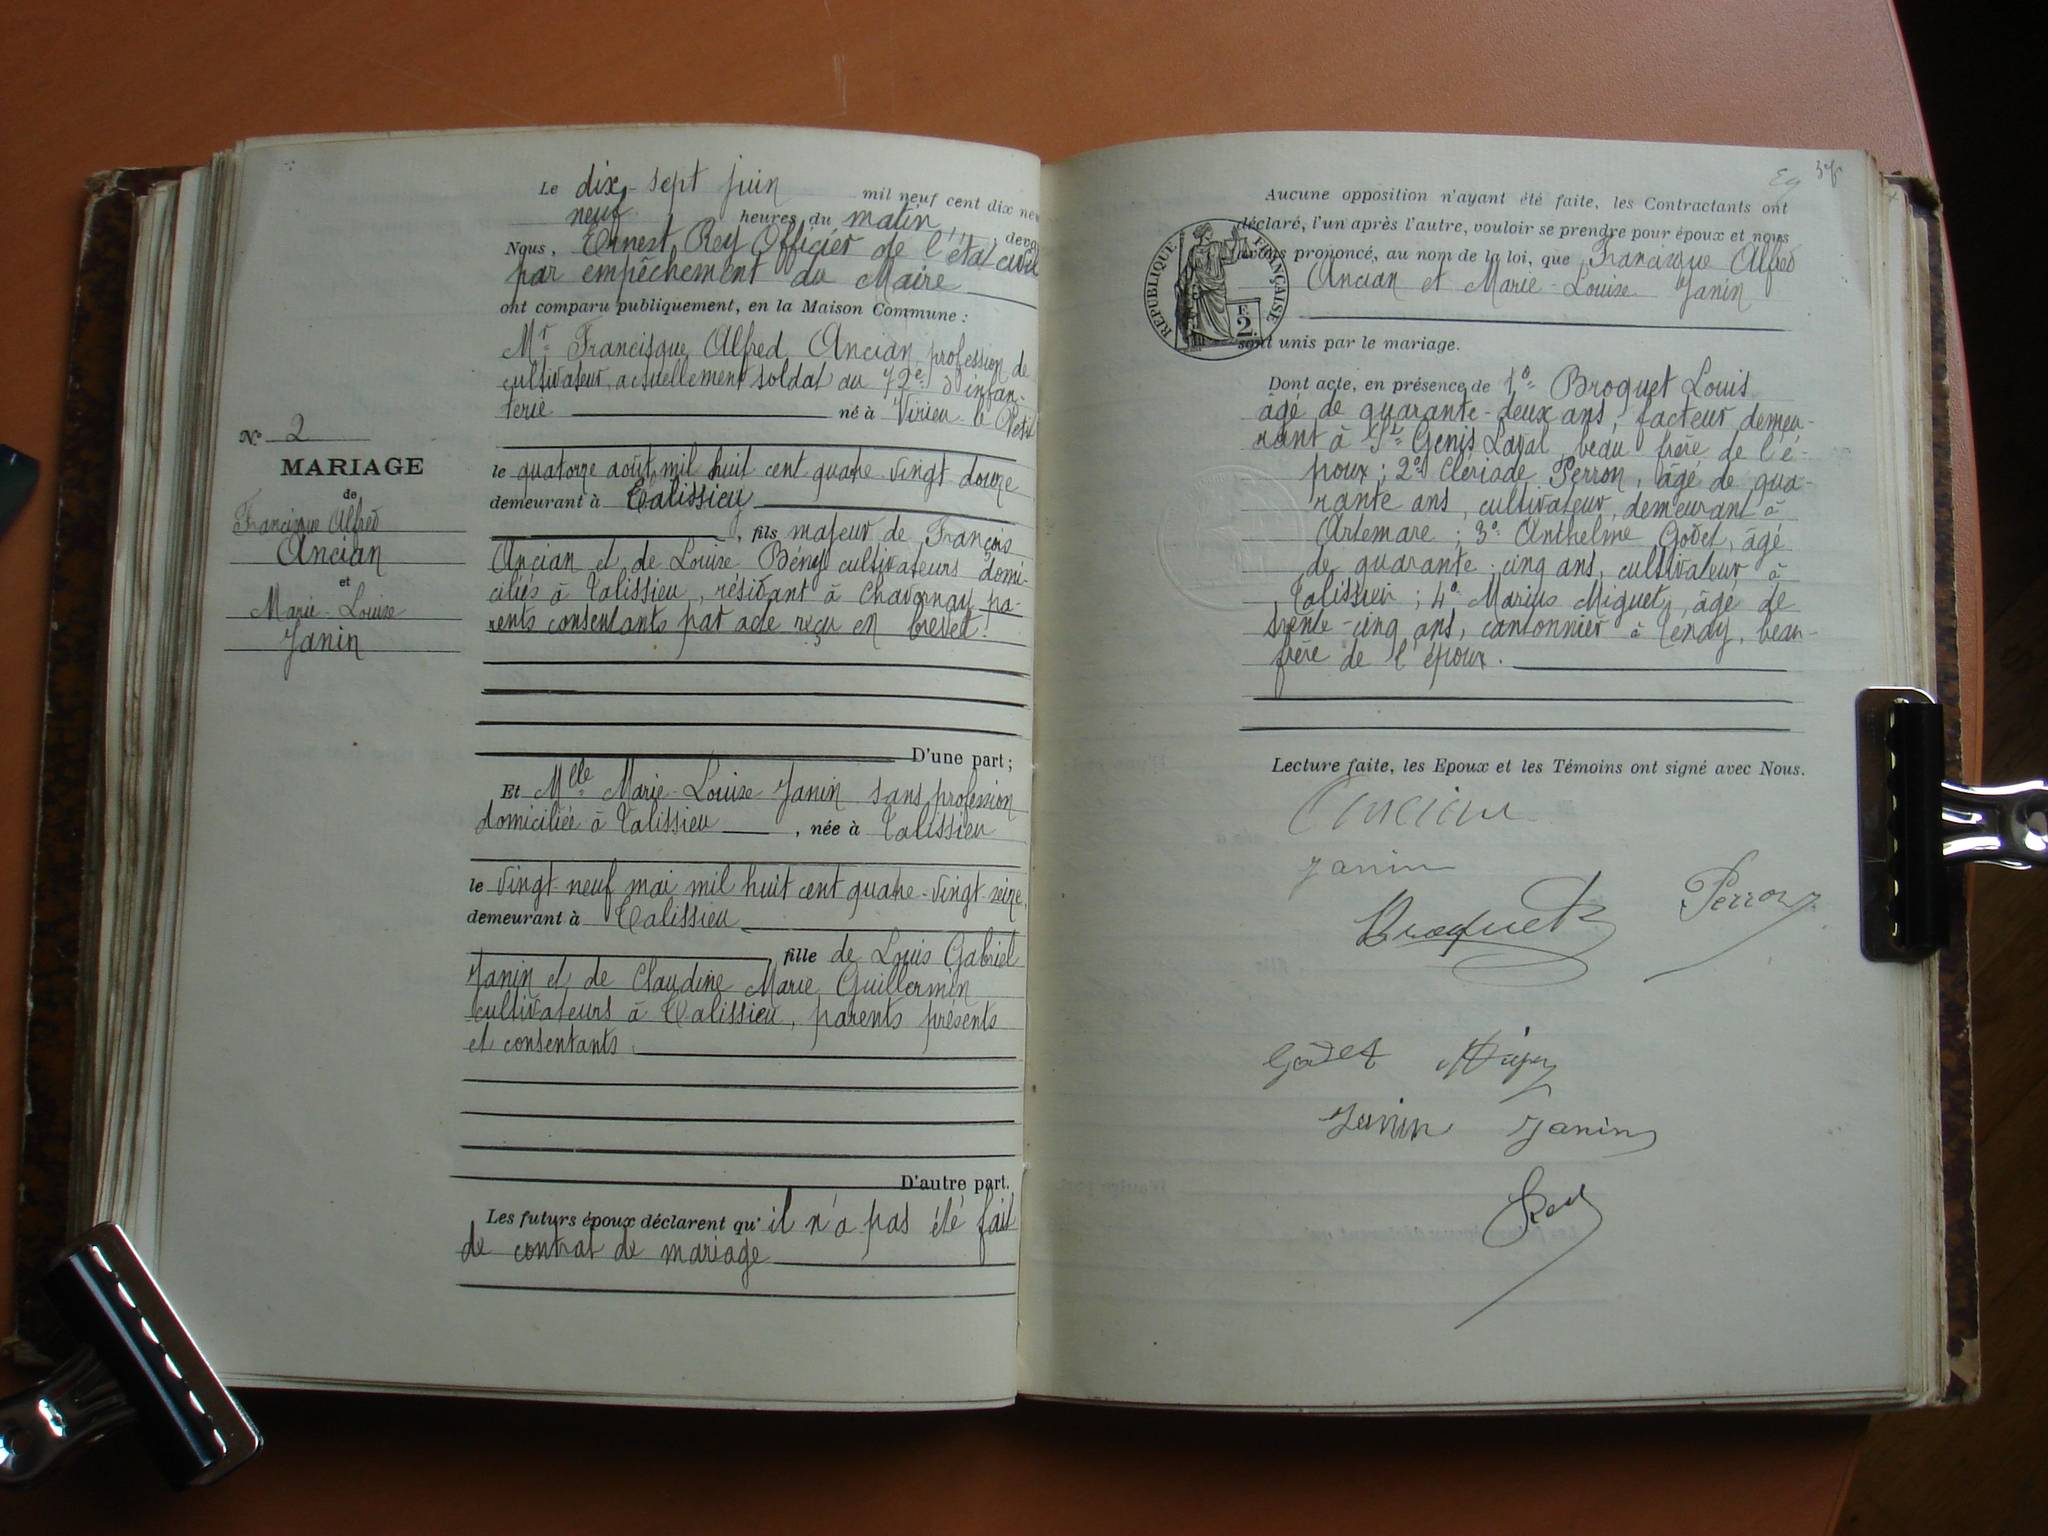 Le dix-sept juin mil neuf cent dix neu
neuf heures du matin, devo
Nous, Ernest Rey Officier de l'état civil
par empêchement du Maire
ont comparu publiquement, en la Maison Commune :
Mr Francisque Alfred Ancian profession de
cultivateur, actuellement soldat au 72e d'infan-
terie né à Virieu-le-Petit
le quatorze août mil huit cent quatre-vingt douze
demeurant à Talissieu
, fils majeur de François
Ancian et de Louise Bény cultivateurs domi-
ciliés à Talissieu, résidant à Chavornay pa-
rents consentants par acte reçu en brevet.
D'une part ;
Et Mlle Marie-Louise Janin sans profession
domiciliée à Talissieu , née à Talissieu
le vingt-neuf mai mil huit cent quatre-vingt-seize
demeurant à Talissieu
fille de Louis Gabriel
Janin et de Claudine Marie Guillermin
cultivateurs à Talissieu, parents présents
et consentants.
D'autre part.
Les futurs époux déclarent qu'il n'a pas été fait
de contrat de mariage
N° 2
MARIAGE
de
Francisque Alfred
Ancian
et
Marie-Louise
Janin
Aucune opposition n'ayant été faite, les Contractants ont
déclaré, l'un après l'autre, vouloir se prendre pour époux et nous
avons prononcé, au nom de la loi, que Francisque Alfred
Ancian et Marie-Louise Janin
sont unis par le mariage.
RÉPUBLIQUE FRANÇAISE
2F.
Dont acte, en présence de 1° Broquet Louis
âgé de quarante-deux ans, facteur demeu-
rant à St Genis Laval, beau frère de l'é-
poux ; 2° Clériade Perron, âgé de qua-
rante ans, cultivateur, demeurant à
Artemare ; 3° Anthelme Godet, âgé
de quarante-cinq ans, cultivateur à
Talissieu ; 4° Marius Miguet, âgé de
trente-cinq ans, cantonnier à Tenay, beau-
frère de l'époux.
Lecture faite, les Epoux et les Témoins ont signé avec Nous.
Ancian
Janin
Broquet Perron
Godet
Janin Janin
Rey